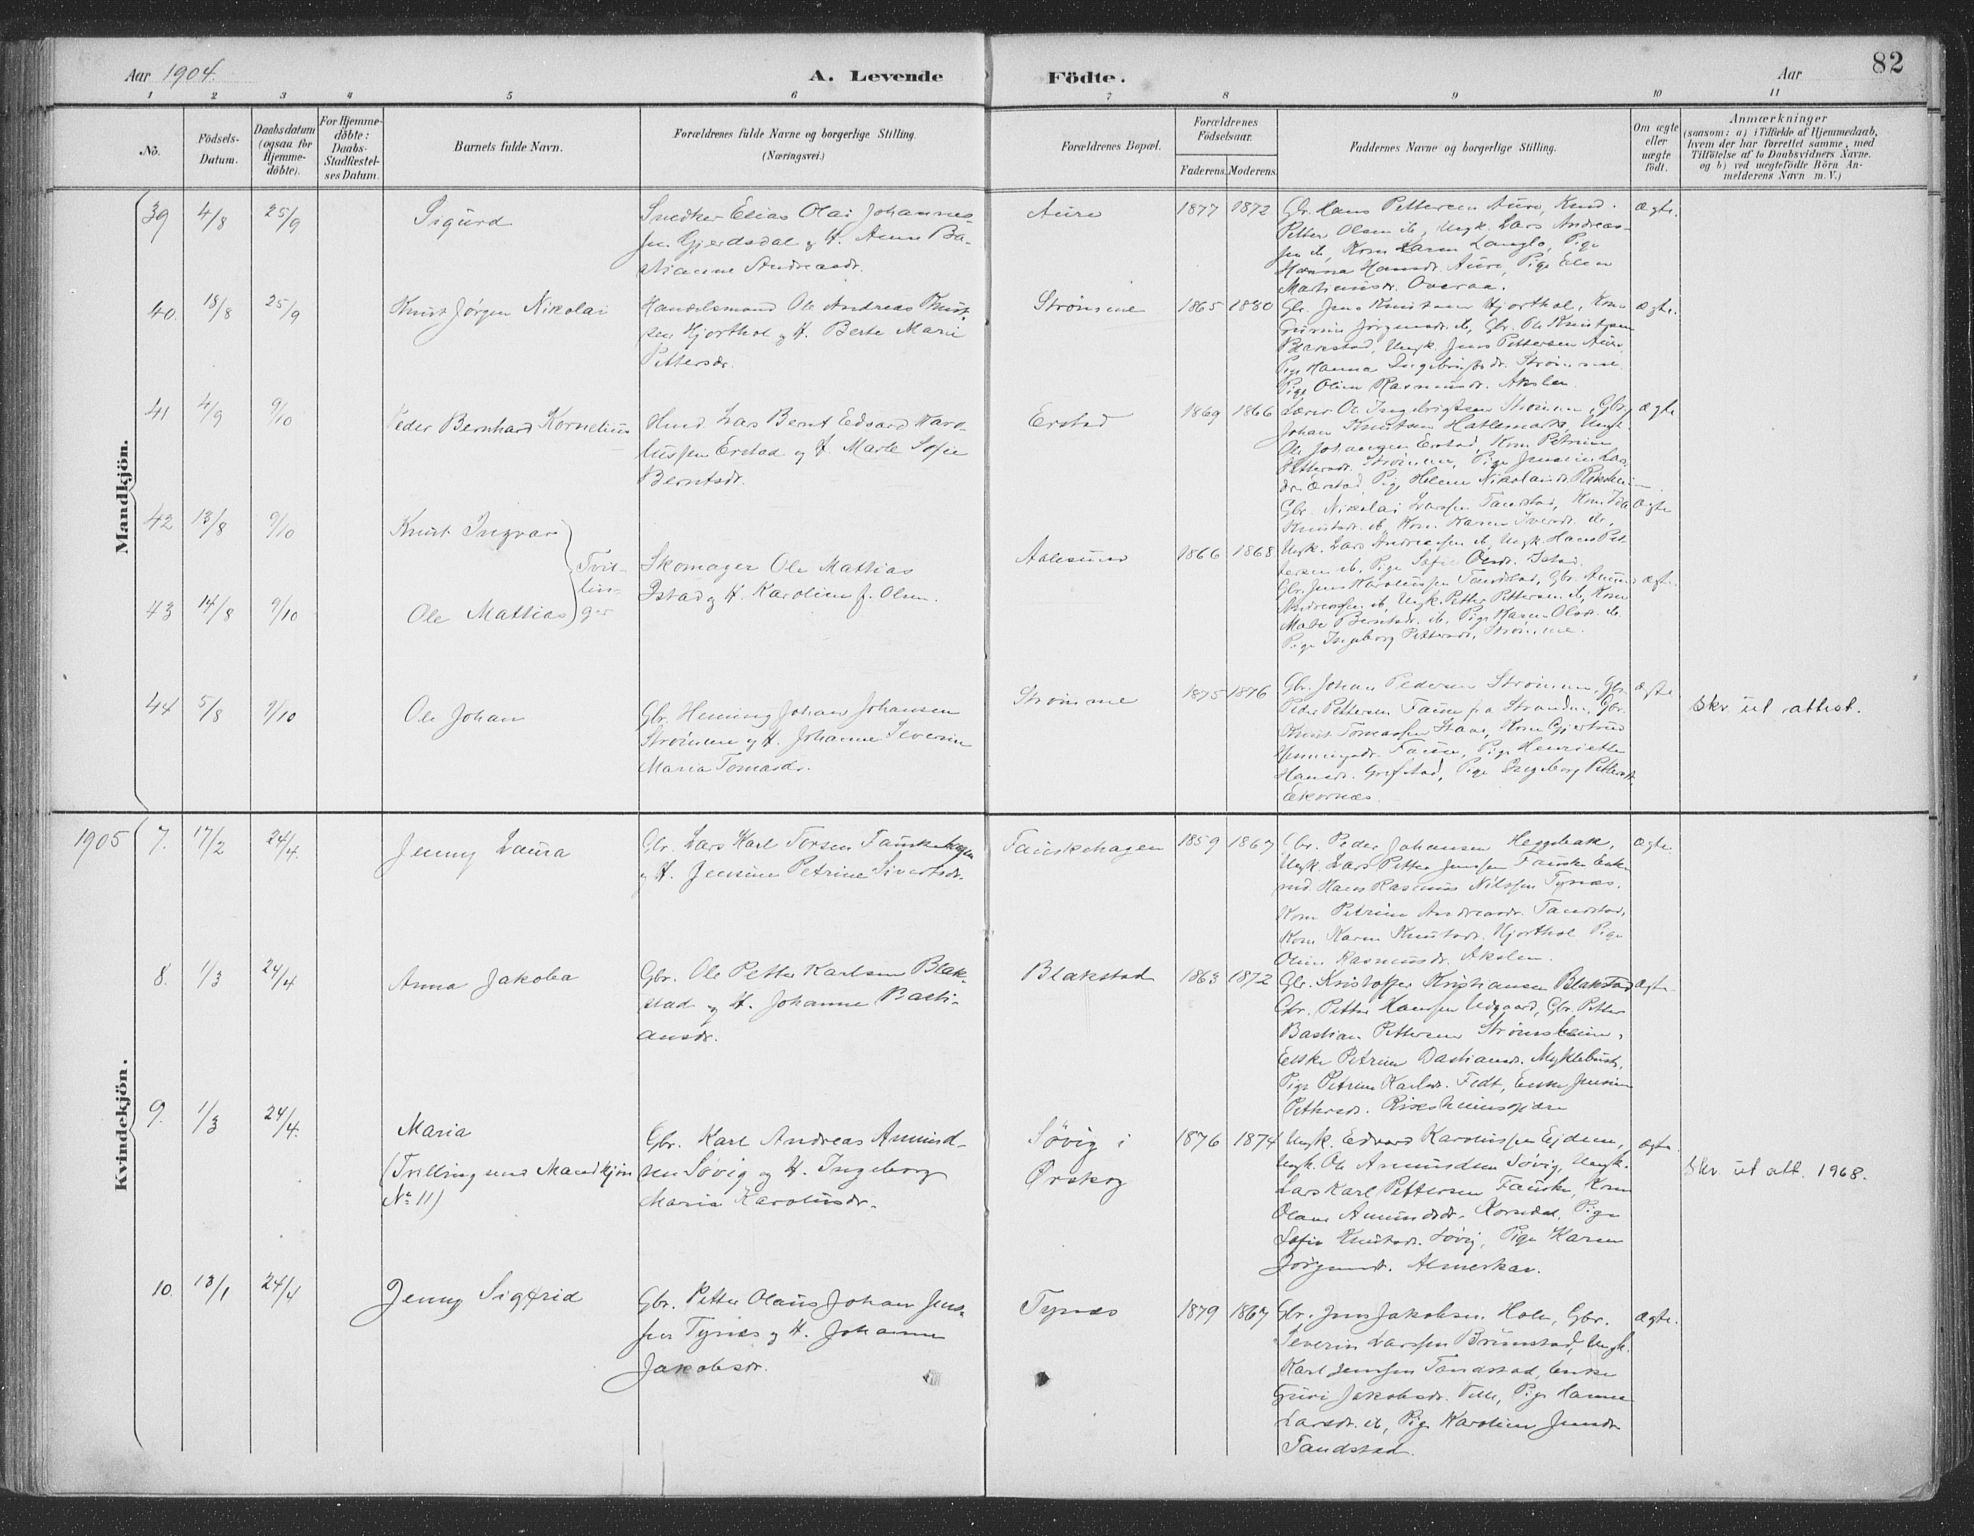 Aar 1904.
A. Levende Födte.
Aar
82
1 2 3 4 5 6 7 8 9 10 11
No.
Födsels-
Datum.
Daabsdatum
(ogsaa for
Hjemme-
döbte).
For Hjemme-
döbte:
Daabs-
Stadfæstel-
ses Datum.
Barnets fulde Navn.
Forældrenes fulde Navne og borgerlige Stilling.
(Næringsvei.)
Forældrenes Bopæl.
Forældrenes
Födselsaar.
Faderens. Moderens.
Faddernes Navne og borgerlige Stilling.
Om ægte
eller
uægte
födt.
Anmærkninger
(saasom: a) i Tilfælde af Hjemmedaab,
hvem der har forrettet samme, med
Tilföielse af to Daabsvidners Navne.
og b) ved uægtefödte Börn An-
melderens Navn m. V.)
Mandkjön.
39 4/8 25/9
Sigurd
Snedker Elias Olai Johannes-
sen Gjerdsdal og H. Anne Ba-
sianne Andreasdr.
Aure
1877 1872
Gbr. Hans Pettersen Aure, Kand.
Petter Olsen ib, Ungk. Lars Andreas-
sen ib, Kone Karen Langlo, Pige
Hanna Hansdr. Aure, Pige Elen
Martinusdr. Overaa.
ægte.
40. 18/8 25/9
Knut Jörgen Nikolai
Handelsmand Ole Andreas Knut-
sen Hjorthol og H. Berte Marie
Pettersdr.
Strömme
1865 1880
Gbr. Jens Knutsen Hjorthol, Kone
Gurine Jörgensdr. ib, Gbr. Ole Knutsen
Blakstad, Ungk. Jens Pettersen Aure
Pige Hanna Ingebrigtsdr. Strömme
Pige Oline Rasmusdr. Akslen.
ægte.
41 4/9 9/10
Peder Bernhard Kornelius
Hmd. Lars Bernt Edvard Karo-
liussen Erstad og H. Marte Sofie
Berntsdr.
Erstad
1869 1866
Lærer Ole Ingebrigtsen Strömme, Gbr.
Johan Knutsen Hatlemark, Ungk.
Ole Johansen Erstad, Kone Petrine
Pettersdr. Strömme, Pige Jensine Lars-
dr. Erstad, Pige Helene Nikolaisdr.
ægte
42 13/8 9/10
Knut Ingvar
43 14/8 9/10
Ole Mattias
Tvil-
lin-
ger
Skomager Ole Mattias
Istad og H. Karoline f. Olsen.
Aalesund
1866 1868
Gbr. Nikolai Larssen Tandstad, Kone Ida
Knutsdr. ib, Kone Karen Iversdr. ib,
Ungk. Lars Andreassen ib, Ungk. Hans Pet-
tersen ib, Pige Sofie Olsdr. Istad.
ægte
Gbr. Jens Karolussen Tandstad, Gbr. Amund
Andreassen ib, Ungk. Petter Pettersen ib, Kone
Mate Berntsdr. ib, Pige Karen Olsdr. ib
Pige Ingeborg Pettersdr. Strömme.
ægte
44 5/8 9/10
Ole Johan
Gbr. Heming Johan Johansen
Strömme og H. Johanne Severine
Maria Tomasdr.
Strömme
1875 1876
Gbr. Johan Pedersen Strömme, Gbr.
Peder Pettersen Fause fra Stranden, Gbr.
Knut Tomassen Haae, Kone Gjertrud
Hemingsdr. Fause, Pige Henriette
Hansdr. Grefstad, Pige Ingeborg Pettersdr.
Ekornæs.
ægte.
Skr ut attest.
1905
Kvindekjön.
7. 17/2 24/4.
Jenny Laura
Gbr. Lars Karl Torsen Fauskehagen
og H. Jensine Petrine Sivertsdr.
Fauskehagen
1859 1867
Gbr. Peder Johansen Heggebak,
Ungk. Lars Petter Jenssen Fauske Enke-
md. Hans Rasmus Nilssen Tynæs.
Kone Petrine Andreasdr. Tandstad,
Kone Karen Knutsdr. Hjorthol Pige
Oline Rasmusdr. Akslen.
ægte.
8. 1/3 24/4
Anna Jakoba
Gbr. Ole Petter Karlsen Blak-
stad og H. Johanne Basti-
ansdr.
Blakstad
1863 1872
Gbr. Kristoffer Kristiansen Blakstad
Gbr. Petter Hanssen Udgaard, Gbr. Petter
Bastian Pettersen Strömsheim,
Enke Petrine Bastiansdr. Myklebust,
Pige Petrine Karlsdr. Fedt, Enke Jensine
Pettersdr.
ægte.
9. 1/3 24/4.
Maria
(Trilling med Mandkjön
No 11)
Gbr. Karl Andreas Amund-
sen Søvig og H. Ingeborg
Maria Karolusdr.
Søvig i
Ørskog
1876 1874
Ungk. Edvard Karolussen Ejdem,
Ungk. Ole Amundsen Søvig, Ungk.
Lars Karl Pettersen Fauske, Kone
Olave Amundsdr. Korsdal, Pige
Sofie Knutsdr. Søvig, Pige Karen
Jörgensdr. Almeskar.
ægte.
Skr ut att. 1968.
10. 13/1 24/4
Jenny Sigfrid
Gbr. Petter Olaus Johan Jens-
sen Tynæs og H. Johanne
Jakobsdr.
Tynæs
1879 1867
Gbr. Jens Jakobsen Hole, Gbr.
Severin Larssen Brunstad, Ungk.
Karl Jenssen Tandstad, Enke
Guri Jakobsdr. Velle, Pige Hanne
Larsdr. ib, Pige Karoline Jensdr.
Tandstad.
ægte.